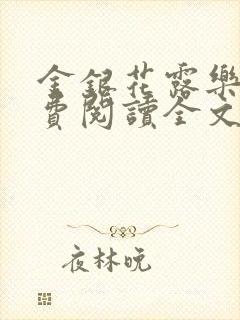 金銀花露樂
費閱讀全文
夜林晚